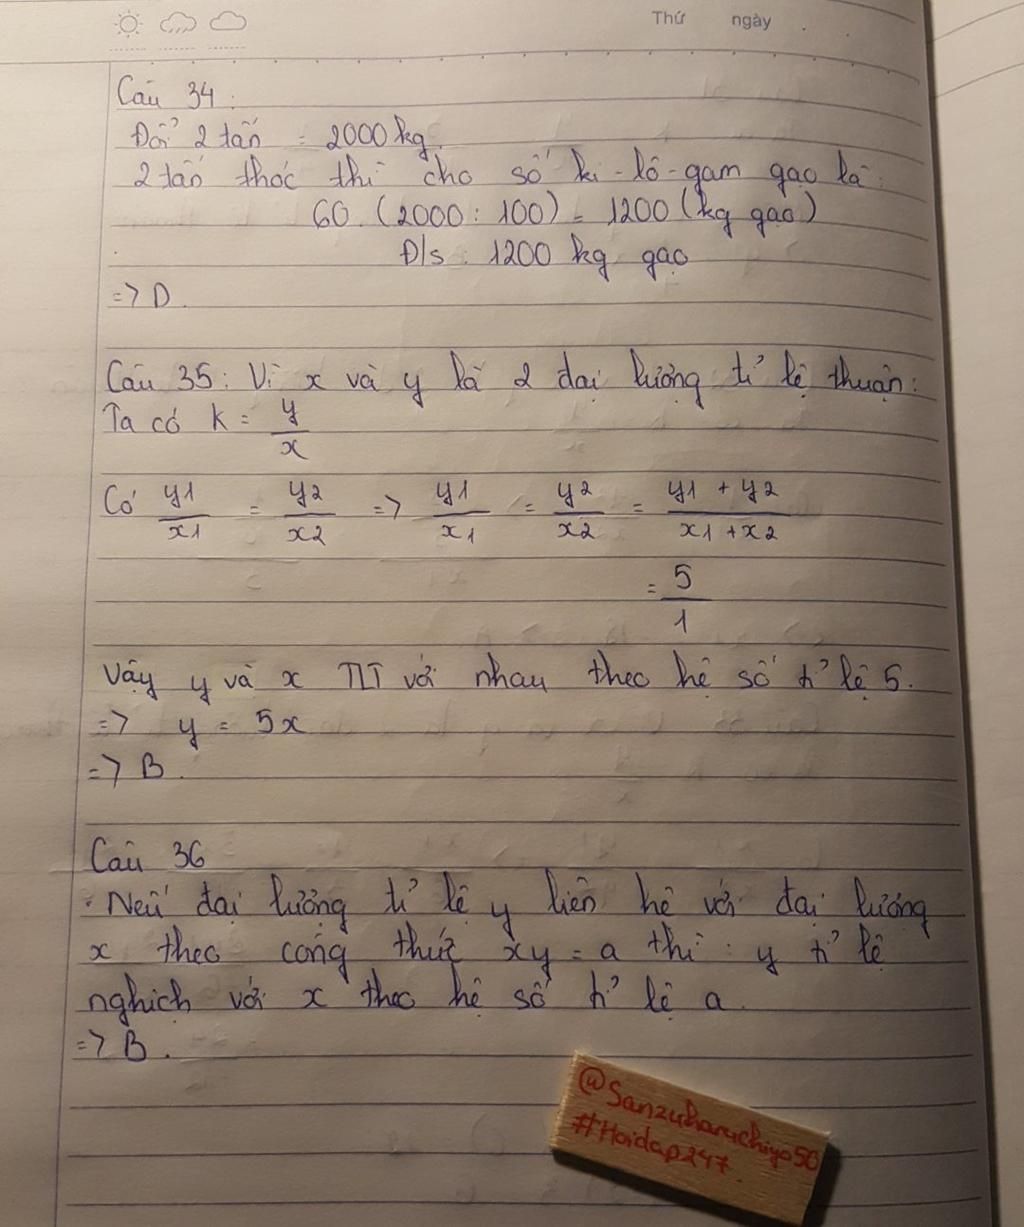 Thứ ngày
Câu 34:
Đổi 2 tấn = 2000 kg.
2 tấn thóc thì cho số ki-lô-gam gạo là:
60. (2000 : 100) = 1200 (kg gạo)
Đ/s : 1200 kg gạo
=> D.
Câu 35: Vì x và y là 2 đại lượng tỉ lệ thuận:
Ta có k = y/x
Có y1/x1 = y2/x2 => y1/x1 = y2/x2 = y1 + y2/x1 + x2
= 5/1
Vậy y và x TLT với nhau theo hệ số tỉ lệ 5.
=> y = 5x
=> B.
Câu 36
. Nếu đại lượng tỉ lệ y liên hệ với đại lượng
x theo công thức xy = a thì : y tỉ lệ
nghịch với x theo hệ số tỉ lệ a.
=> B.
@Sanzuharuchiyo50
#Hoidap247.